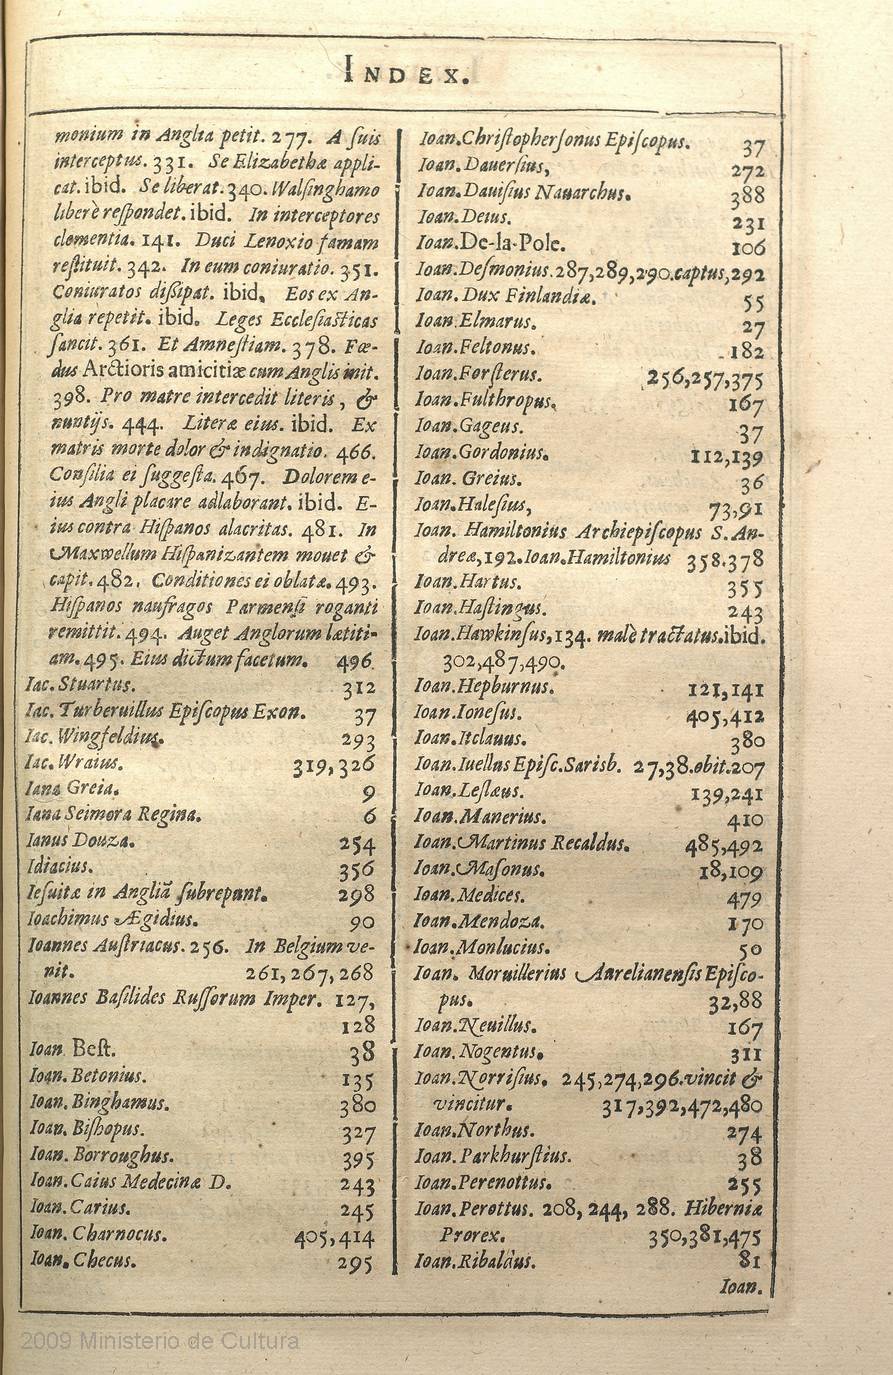 INDEX.
monium in Anglia petit. 277. A ſuis
interceptus. 331. Se Elizabethæ appli-
cat. ibid. Se liberat. 340. Walſinghamo
liberè reſpondet. ibid. In interceptores
clementia. 141. Duci Lenoxio famam
reſtituit. 342. In eum coniuratio. 351.
Coniuratos diſſipat. ibid. Eos ex An-
glia repetit. ibid. Leges Eccleſiaſticas
ſancit. 361. Et Amneſtiam. 378. Fœ-
dus Arctioris amicitiæ cum Anglis init.
398. Pro matre intercedit literis, &
nuntijs. 444. Literæ eius. ibid. Ex
matris morte dolor & indignatio. 466.
Conſilia ei ſuggeſta. 467. Dolorem e-
ius Angli placare adlaborant. ibid. E-
ius contra Hiſpanos alacritas. 481. In
Maxwellum Hiſpanizantem mouet &
capit. 482. Conditiones ei oblatæ. 493.
Hiſpanos naufragos Parmenſi roganti
remittit. 494. Auget Anglorum lætiti-
am. 495. Eius dictum facetum. 496
Iac. Stuartus. 312
Iac. Turberuillus Epiſcopus Exon. 37
Iac. Wingfeldius. 293
Iac. Wraius. 319,326
Iana Greia. 9
Iana Seimora Regina. 6
Ianus Douza. 254
Idiacius. 356
Ieſuitæ in Angliā ſubrepunt. 298
Ioachimus Ægidius. 90
Ioannes Auſtriacus. 256. In Belgium ve-
nit. 261, 267, 268
Ioannes Baſilides Ruſſorum Imper. 127,
128
Ioan Beſt. 38
Ioan. Betonius. 135
Ioan. Binghamus. 380
Ioan. Biſhopus. 327
Ioan. Borroughus. 395
Ioan. Caius Medecinæ D. 243
Ioan. Carius. 245
Ioan. Charnocus. 405,414
Ioan. Checus. 295
Ioan. Chriſtopherſonus Epiſcopus. 37
Ioan. Dauerſius, 272
Ioan. Dauiſius Nauarchus. 388
Ioan. Deius. 231
Ioan. De-la-Pole. 106
Ioan. Deſmonius. 287,289,290. captus, 292
Ioan. Dux Finlandiæ. 55
Ioan. Elmarus. 27
Ioan. Feltonus. 182
Ioan. Forſterus. 256,257,375
Ioan. Fulthropus. 167
Ioan. Gageus. 37
Ioan. Gordonius. 112,139
Ioan. Greius. 36
Ioan. Haleſius, 73,91
Ioan. Hamiltonius Archiepiſcopus S. An-
dreæ, 192. Ioan. Hamiltonius 358.378
Ioan. Hartus. 355
Ioan. Haſtingus. 243
Ioan. Hawkinſus, 134. malè tractatus. ibid.
302,487,490.
Ioan. Hepburnus. 121,141
Ioan. Ioneſus. 405,412
Ioan. Itclauus. 380
Ioan. Iuellus Epiſc. Sarisb. 27,38. obit. 207
Ioan. Leſlæus. 139,241
Ioan. Manerius. 410
Ioan. Martinus Recaldus. 485,492
Ioan. Maſonus. 18,109
Ioan. Medices. 479
Ioan. Mendoza. 170
Ioan. Monlucius. 50
Ioan. Moruillerius Aurelianenſis Epiſco-
pus. 32,88
Ioan. Neuillus. 167
Ioan. Nogentus. 311
Ioan. Norriſius. 245,274,296. vincit &
vincitur. 317,392,472,480
Ioan. Northus. 274
Ioan. Parkhurſtius. 38
Ioan. Perenottus. 255
Ioan. Perottus. 208, 244, 288. Hiberniæ
Prorex. 350,381,475
Ioan. Ribaldus. 81
Ioan.
2009 Ministerio de Cultura